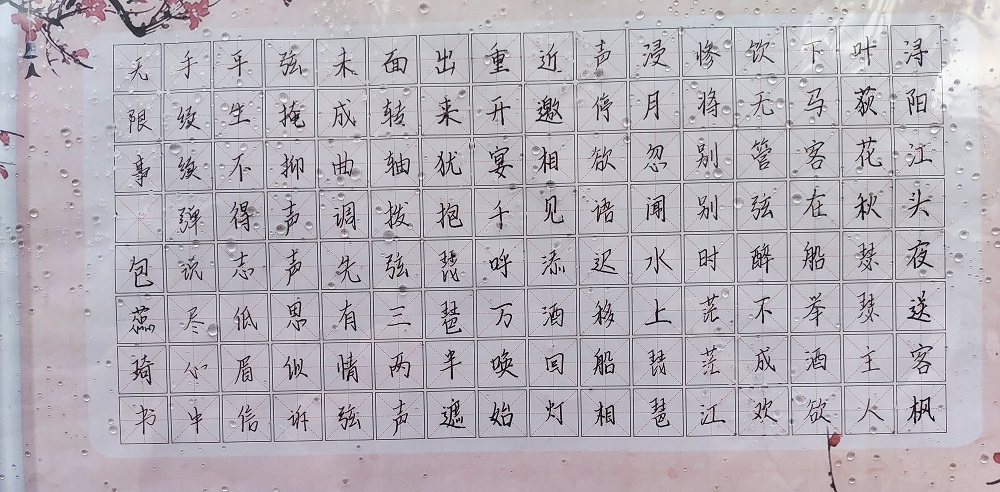 浔阳江头夜送客枫
叶荻花秋瑟瑟主人
下马客在船举酒欲
饮无管弦醉不成欢
惨将别别时茫茫江
浸月忽闻水上琵琶
声停欲语迟移船相
近邀相见添酒回灯
重开宴千呼万唤始
出来犹抱琵琶半遮
面转轴拨弦三两声
未成曲调先有情弦
弦掩抑声声思似诉
平生不得志低眉信
手续续弹说尽心中
无限事 包蕊琦书